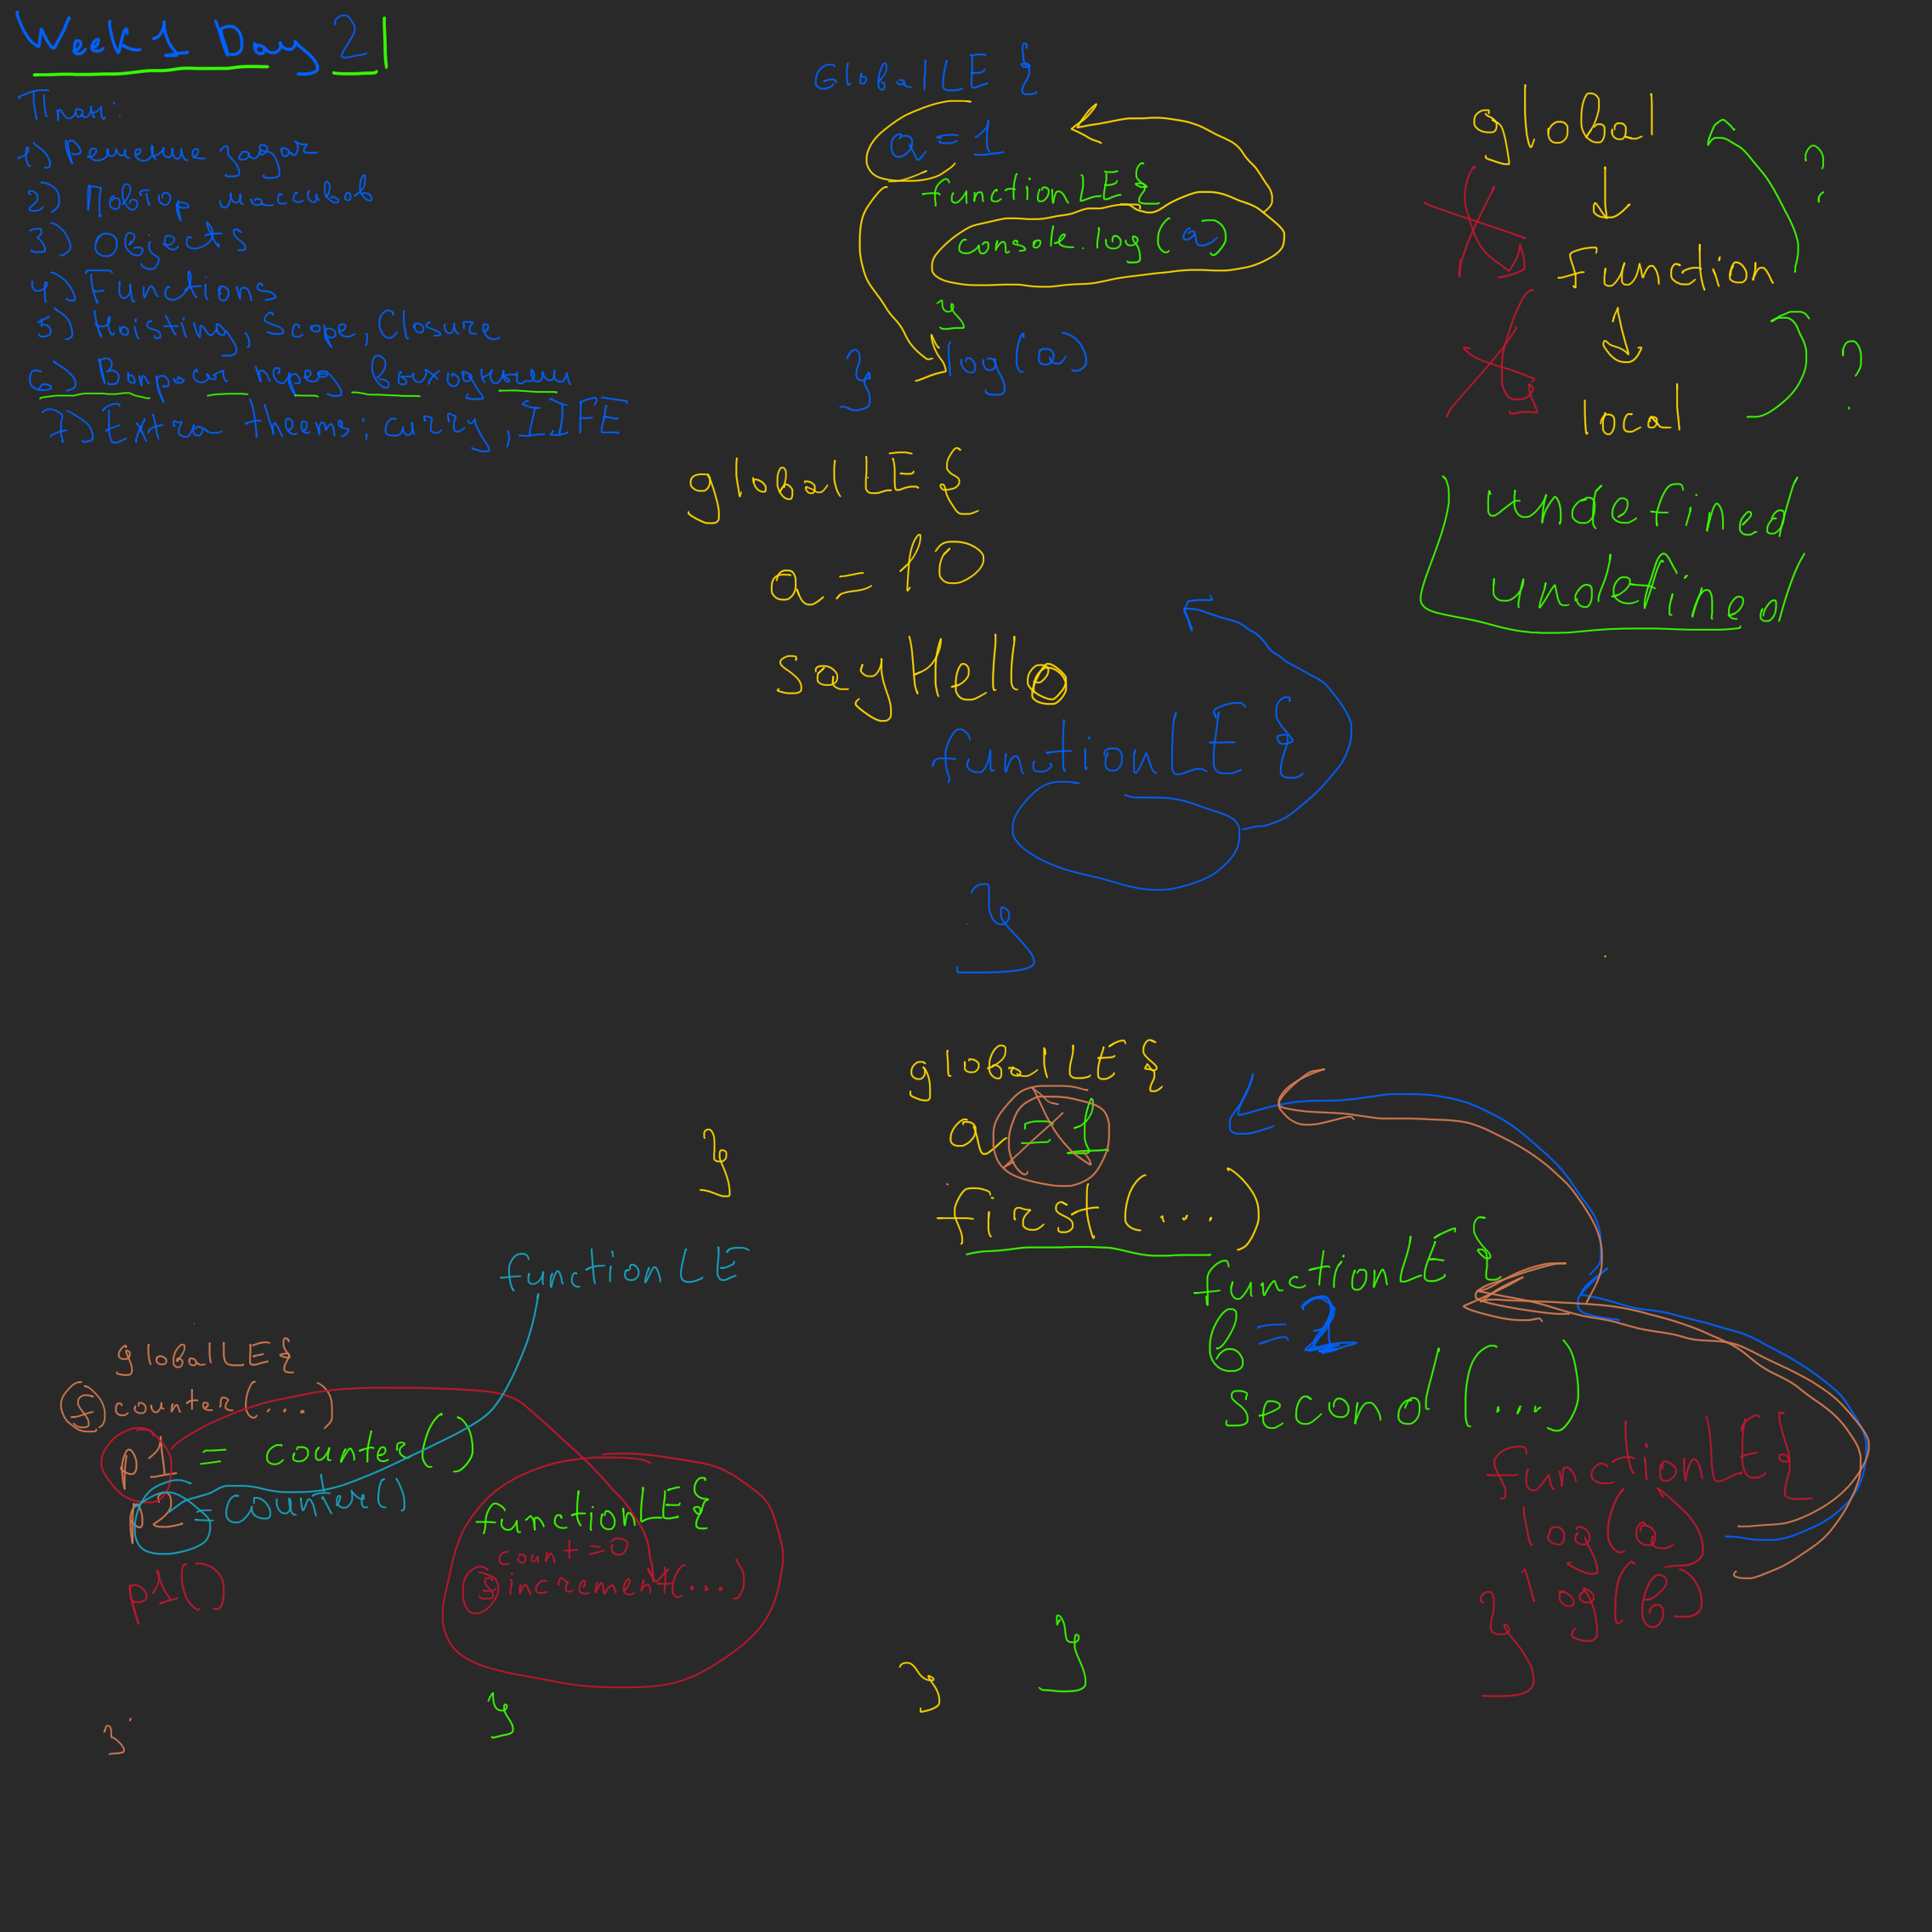 Week 1 Day 2
План:
1) Решение задач
2) Повтор массивов
3) Objects
4) Functions
5) Hoisting, Scope, Closure
6) Вопросы перед выходными
7) Extra thems: curry, IIFE
GlobalLE {
a = 1
functionLE {
console.log(a)
}
} log(a)
global
function
local
?
?
undefined
undefined
globalLE {
a = 10
sayHello
functionLE {
}
}
globalLE {
a = 1
first(...)
functionLE {
b = 2
second(...)
functionLE {
log(a)
log(b)
}
}
}
functionLE
globalLE {
f counter(...)
p1 = counter()
p2 = counter()
p1()
functionLE {
count = 0
f increment(...)
}
}